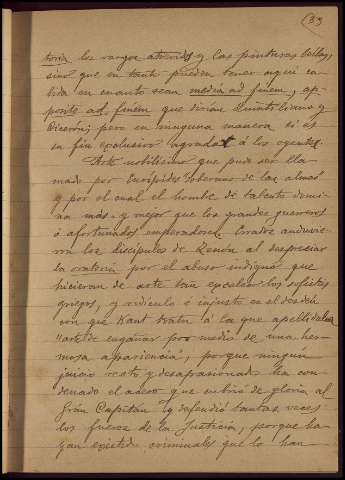 (89
toria los rasgos atrevidos y las pinturas bellas,
sino que en tanto pueden tener aquí ca-
bida en cuanto sean media ad finem, ap-
posite ad finem que dirían Quintiliano y
Cicerón; pero en ninguna manera si es
su fin exclusivo agradar á los oyentes.
Arte nobilísimo que pudo ser lla-
mado por Eurípides soberano de las almas
y por el cual el hombre de talento domi-
na más y mejor que los grandes guerreros
ó afortunados emperadores. Errados anduvie-
ron los discípulos de Zenón al despreciar
la oratoria por el abuso indigno que
hicieran de arte tan excelso los sofistas
griegos, y ridículo é injusto en el desdén
con que Kant trata á la que apellidaba
"arte de engañar por medio de una her-
mosa apariencia", porque ningún
juicio recto y desapasionado ha con-
denado el acero que cubrió de gloria al
Gran Capitán y defendió tantas veces
los fueros de la Justicia, porque ha-
yan existido criminales que lo han